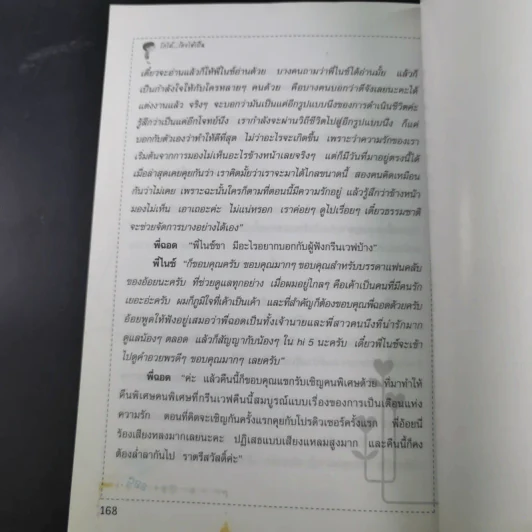 เดี๋ยวจะอ่านแล้วก็ให้พี่ไนซ์อ่านด้วย บางคนถามว่าพี่ไนซ์ได้อ่านมั้ย แล้วก็
เป็นกำลังใจให้กับใครหลายๆ คนด้วย คือบางคนบอกว่าดีจังเลยนะคะได้
แต่งงานแล้ว จริงๆ จะบอกว่ามันเป็นแค่อีกรูปแบบนึงของการดำเนินชีวิตค่ะ
รู้สึกว่าเป็นแค่อีกโจทย์นึง เรากำลังจะผ่านวิถีชีวิตไปสู่อีกรูปแบบนึง ก็แค่
บอกกับตัวเองว่าทำให้ดีที่สุด ไม่ว่าอะไรจะเกิดขึ้น เพราะว่าความรักของเรา
เริ่มต้นจากการมองไม่เห็นอะไรข้างหน้าเลยจริงๆ แต่ก็มีวันที่มาอยู่ตรงนี้ได้
เมื่อล่าสุดเคยคุยกันว่า เราคิดมั้ยว่าเราจะมาได้ไกลขนาดนี้ สองคนคิดเหมือน
กันว่าไม่เคย เพราะฉะนั้นใครก็ตามที่ตอนนี้มีความรักอยู่ แล้วรู้สึกว่าข้างหน้า
มองไม่เห็น เอาเถอะค่ะ ไม่แน่หรอก เราค่อยๆ ดูไปเรื่อยๆ เดี๋ยวธรรมชาติ
จะช่วยจัดการบางอย่างได้เอง"
พี่ฉอด "พี่ไนซ์ขา มีอะไรอยากบอกกับผู้ฟังกรีนเวฟบ้าง"
พี่ไนซ์ "ก็ขอบคุณครับ ขอบคุณมากๆ ขอบคุณสำหรับบรรดาแฟนคลับ
ของอ้อยนะครับ ที่ช่วยดูแลทุกอย่าง เมื่อผมอยู่ใกลๆ คือเค้าเป็นคนที่มีคนรัก
เยอะอ่ะครับ ผมก็ภูมิใจที่เค้าเป็นเค้า และที่สำคัญก็ต้องขอบคุณพี่ฉอดด้วยครับ
อ้อยพูดให้ฟังอยู่เสมอว่าพี่ฉอดเป็นทั้งเจ้านายและพี่สาวคนนึงที่น่ารักมาก
ดูแลน้องๆ ตลอด แล้วก็สัญญากับน้องๆ ใน hi 5 นะครับ เดี๋ยวพี่ไนซ์จะเข้า
ไปดูคำอวยพรดีๆ ขอบคุณมากๆ เลยครับ"
พี่ฉอด "ค่ะ แล้วคืนนี้ก็ขอบคุณแขกรับเชิญคนพิเศษด้วย ที่มาทำให้
คืนพิเศษคนพิเศษที่กรีนเวฟคืนนี้สมบูรณ์แบบเรื่องของการเป็นเดือนแห่ง
ความรัก ตอนที่คิดจะเชิญกันครั้งแรกคุยกับโปรดิวเซอร์ครั้งแรก พี่อ้อยนี่
ร้องเสียงหลงมากเลยนะคะ ปฏิเสธแบบเสียงแหลมสูงมาก และคืนนี้ก็คง
ต้องล่ำลากันไป ราตรีสวัสดิ์ค่ะ"
168